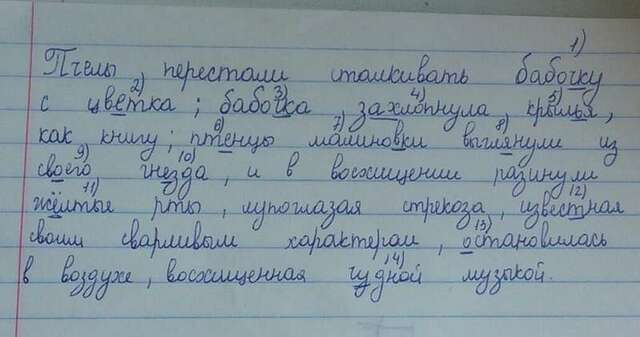 1)
Пчелы перестали сталкивать бабочку
2) 3) 4) 5)
с цветка; бабочка захлопнула крылья,
6) 7) 8)
как книгу; птенцы малиновки выглянули из
9) 10)
своего гнезда, и в восхищении разинули
11) 12)
жёлтые рты, лупоглазая стрекоза, известная
13)
своим сварливым характером, остановилась
14)
в воздухе, восхищенная чудной музыкой.